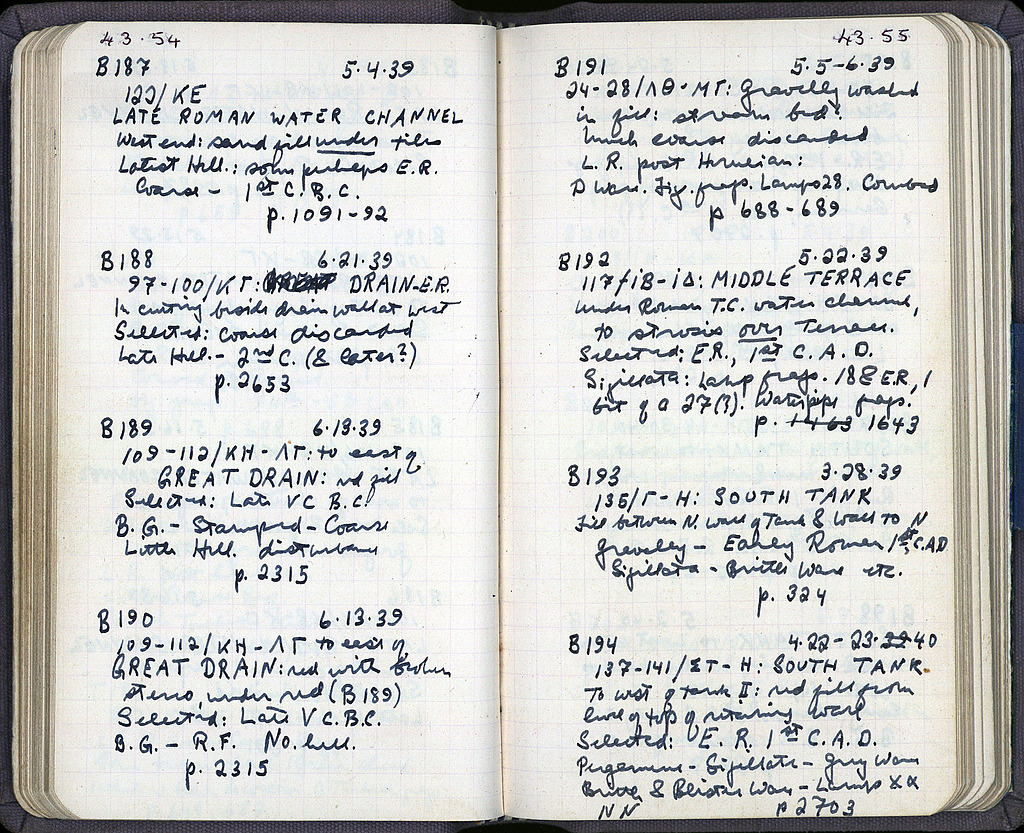 43·54
B187 5·4·39
122/KE
LATE ROMAN WATER CHANNEL
West end: sand fill under tiles
Latest Hell.: some perhaps E.R.
Coarse - 1st C. B.C.
p. 1091-92
B188 6·21·39
97-100/KΓ: DRAIN-E.R.
In cutting beside drain wall at west
Selected: coarse discarded
Late Hell. - 2nd C. (& later?)
p. 2653
B189 6·13·39
109-112/KH-ΛΓ: to east of
GREAT DRAIN: red fill
Selected: Late V C B.C.
B.G. - Stamped - Coarse
Little Hell. disturbance
p. 2315
B190 6·13·39
109-112/KH-ΛΓ to east of
GREAT DRAIN: red with broken
stereo, under red (B189)
Selected: Late V C. B.C.
B.G. - R.F. No hell.
p. 2315
43·55
B191 5·5-6·39
24-28/ΛΘ-ΜΓ: Gravelly washed
in fill: stream bed?
Much coarse discarded
L. R. post Herulian:
D Ware. Fig. frags. Lamps 28. Combed
p 688-689
B192 5·22·39
117/ΙΒ-ΙΔ: MIDDLE TERRACE
Under Roman T.C. water channel,
to strosis over Terrace.
Selected: E.R., 1st C. A.D.
Sigillata: Lamp frags. 18 & E.R., 1
bit of a 27(?). Waterpipe frags.
p. 1463 1643
B193 3·28·39
135/Γ-H: SOUTH TANK
Fill between N. wall of Tank & wall to N
Gravelly - Early Roman 1st C. A.D.
Sigillata - Brittle Ware etc.
p. 324
B194 4·22-23·39 40
137-141/ΣΤ-H: SOUTH TANK
To west of tank II: red fill from
level of top of retaining wall
Selected: E. R. 1st C. A. D.
Pergamene - Sigillata - Gray Ware
Brittle & Blister Ware - Lamps
NN p 2703